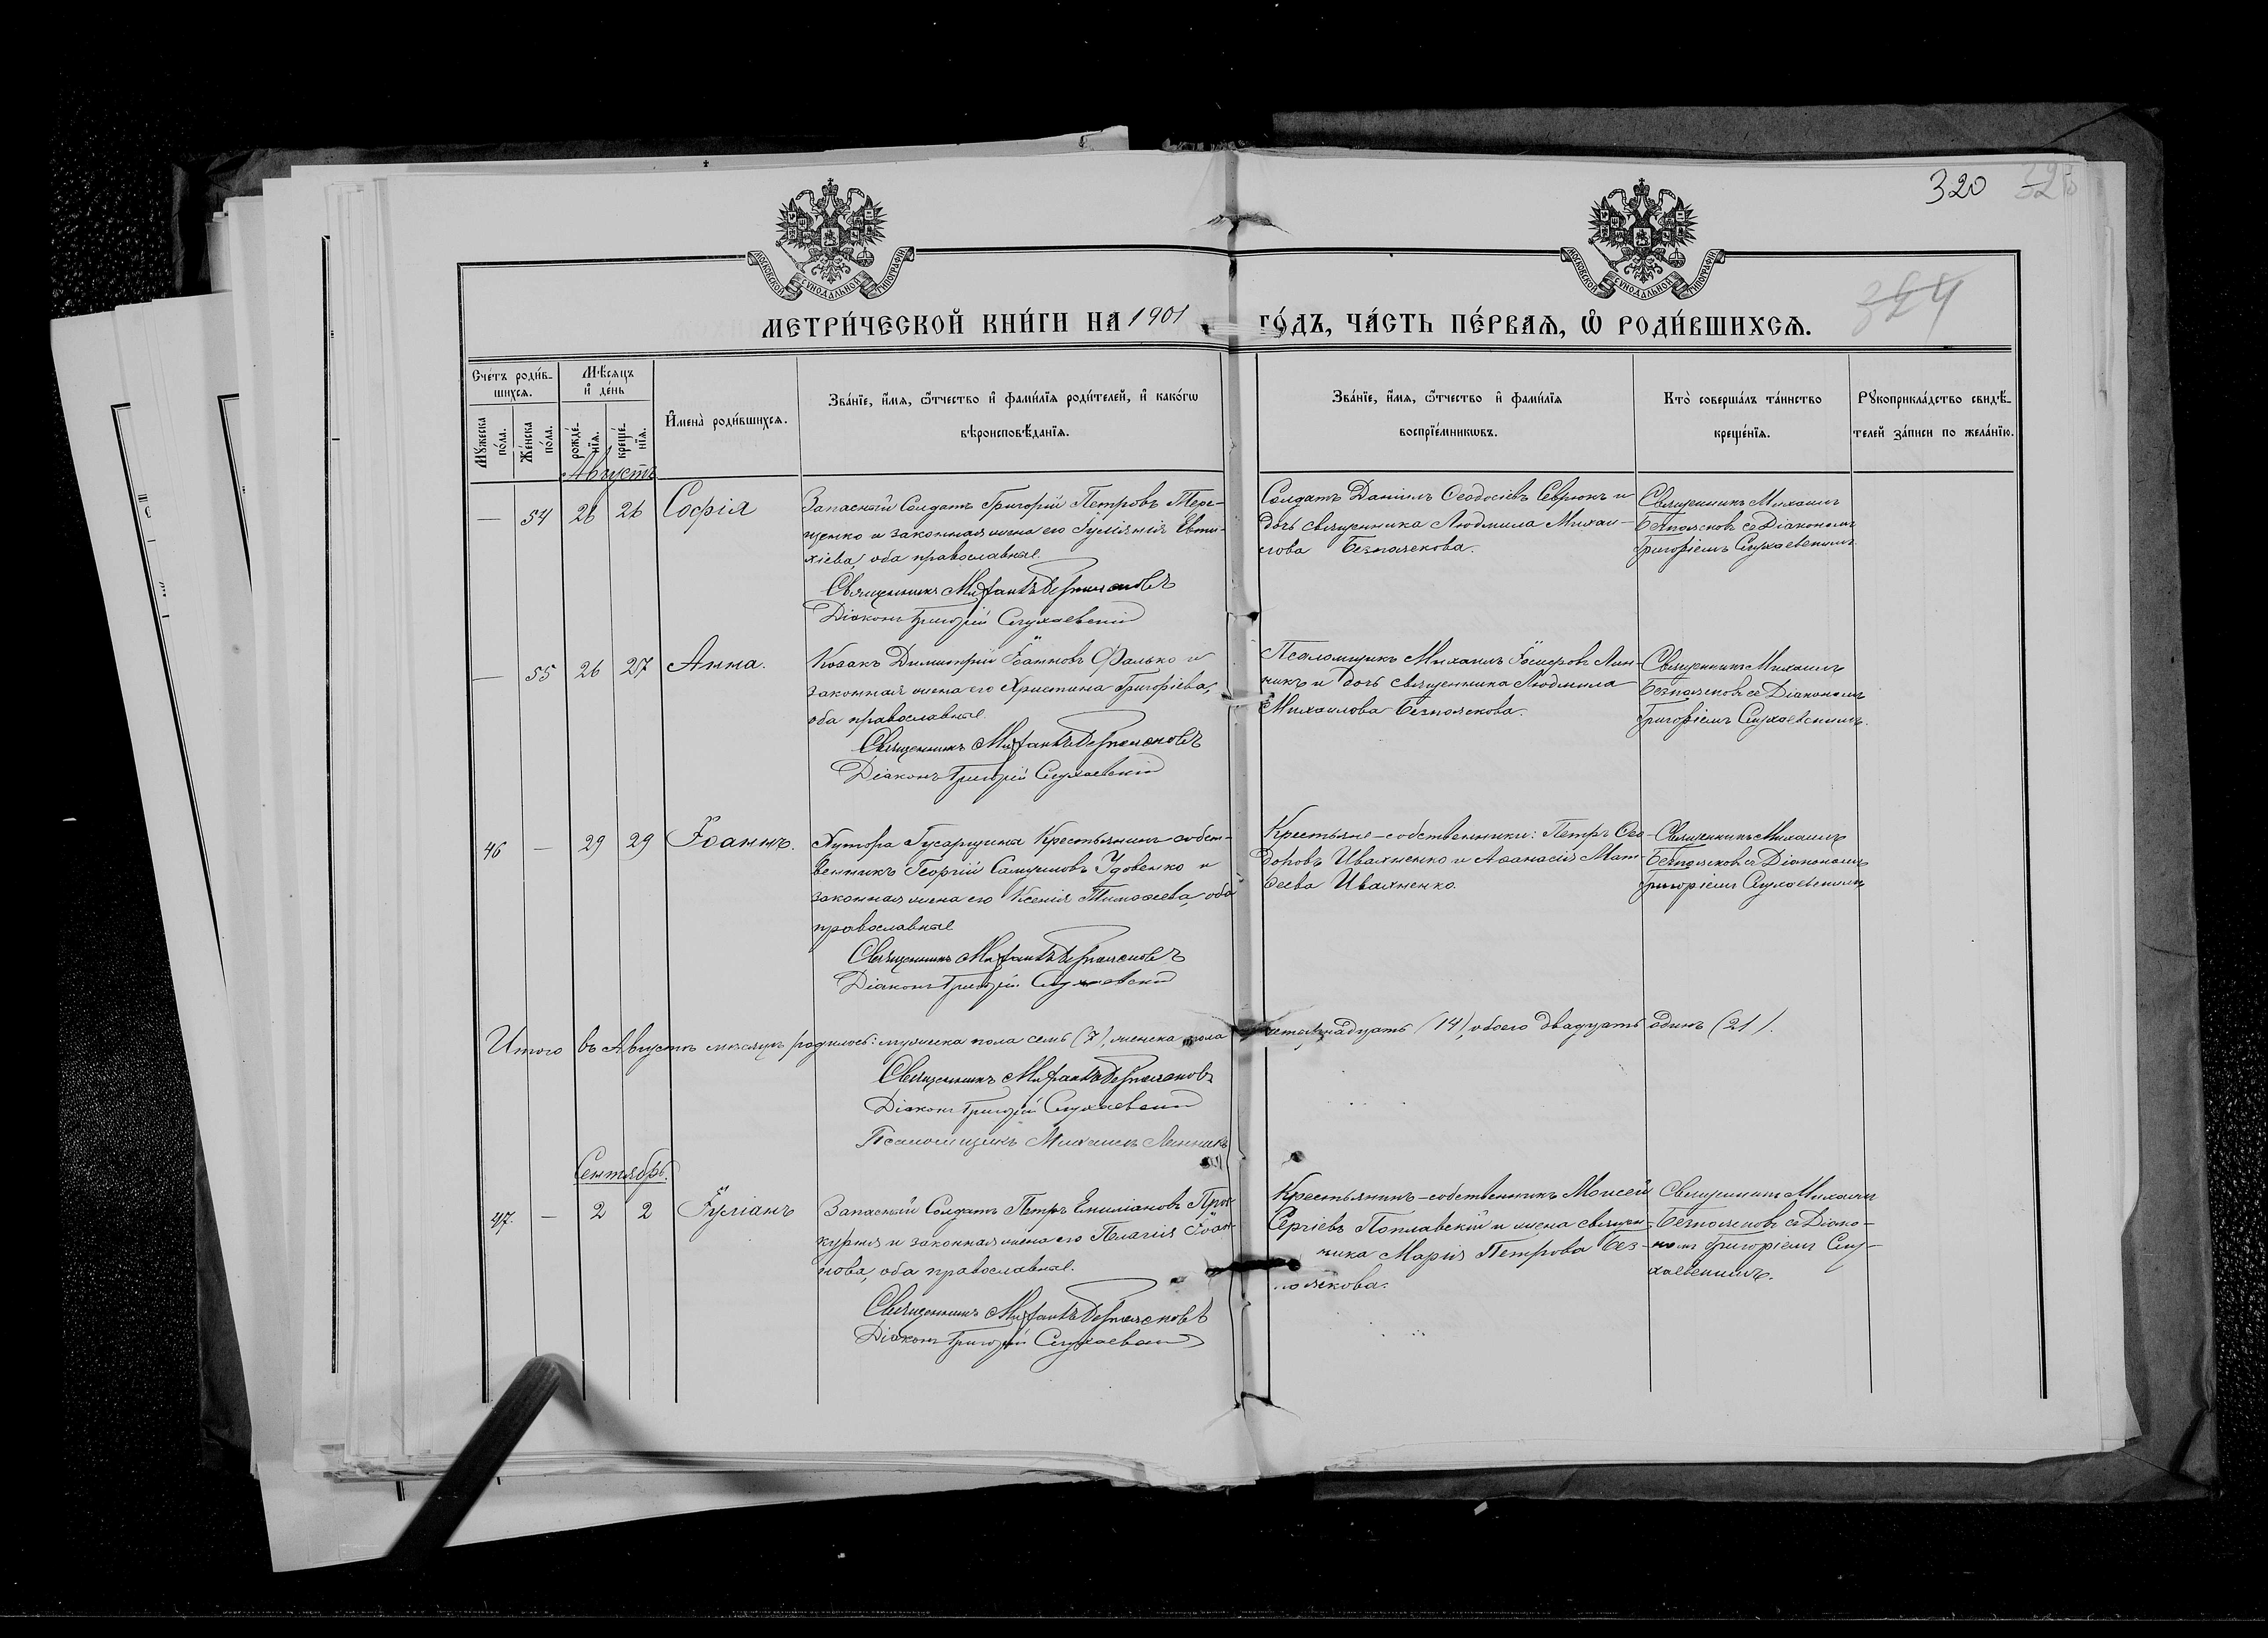 320
МОСКОВСКОЙ СѴНОДАЛЬНОЙ ТИПОГРАФІИ
МОСКОВСКОЙ СѴНОДАЛЬНОЙ ТИПОГРАФІИ
324
МЕТРИ́ЧЕСКОЙ КНИ́ГИ НА 1901 ГО́ДЪ, ЧА́СТЬ ПЕ́РВАѦ, Ѽ РОДИ́ВШИХСѦ.
Сче́тъ роди́в-
шихсѧ.
Мꙋ́жеска по́ла.
Же́нска по́ла.
Мѣ́сѧцъ
и҆ де́нь
рожде́-
нїѧ.
креще́-
нїѧ.
И҆мена̀ роди́вшихсѧ.
Зва́нїе, и҆́мѧ, ѻ҆́тчество и҆ фами́лїѧ роди́телей, и҆ како́гѡ
вѣроисповѣ́данїѧ.
Зва́нїе, и҆́мѧ, ѻ҆́тчество и҆ фами́лїѧ
воспрїе́мникѡвъ.
Кто̀ соверша́лъ та́инство
креще́нїѧ.
Рꙋкоприкла́дство свидѣ́-
телей за́писи по жела́нїю.
Августъ
— 54 26 26 Софія
Запасный Солдатъ Григорій Петровъ Тере-
щенко и законная жена его Іуліанія Евти-
хіева, оба православные.
Священникъ Михаилъ Безпалчековъ
Діаконъ Григорій Слухаевскій
Солдатъ Даніилъ Ѳеодосіевъ Севрюкъ и
дочь священника Людмила Михаи-
лова Безпалчекова.
Священникъ Михаилъ
Безпалчековъ съ Діакономъ
Григоріемъ Слухаевскимъ.
— 55 26 27 Анна.
Козакъ Димитрій Іоанновъ Фалько и
законная жена его Христина Григоріева,
оба православные.
Священникъ Михаилъ Безпалчековъ
Діаконъ Григорій Слухаевскій
Псаломщикъ Михаилъ Лин-
никъ и дочь священника Людмила
Михаилова Безпалчекова.
Священникъ Михаилъ
Безпалчековъ съ Діакономъ
Григоріемъ Слухаевскимъ.
46 — 29 29 Іоаннъ.
Хутора Гусарщина Крестьянинъ-собст-
венникъ Георгій Самуиловъ Удовенко и
законная жена его Ксенія Тимоѳеева, оба
православные
Священникъ Михаилъ Безпалчековъ
Діаконъ Григорій Слухаевскій
Крестьяне-собственники: Петръ Ѳео-
доровъ Ивахненко и Аѳанасія Мат-
ѳеева Ивахненко.
Священникъ Михаилъ
Безпалчековъ съ Діакономъ
Григоріемъ Слухаевскимъ
Итого въ Августѣ мѣсяцѣ родилось: мужеска пола семь (7), женска пола четырнадцать (14), обоего двадцать одинъ (21).
Священникъ Михаилъ Безпалчековъ
Діаконъ Григорій Слухаевскій
Псаломщикъ Михаилъ Линникъ
Сентябрь.
47. — 2 2 Іуліанъ
Запасный Солдатъ Петръ Емиліановъ Про-
курня и законная жена его Пелагія Іоан-
нова, оба православные.
Священникъ Михаилъ Безпалчековъ
Діаконъ Григорій Слухаевскій
Крестьянинъ-собственникъ Моисей
Сергіевъ Поплавскій и жена священ-
ника Марія Петрова Без-
палчекова.
Священникъ Михаилъ
Безпалчековъ съ Діако-
номъ Григоріемъ Слу-
хаевскимъ.